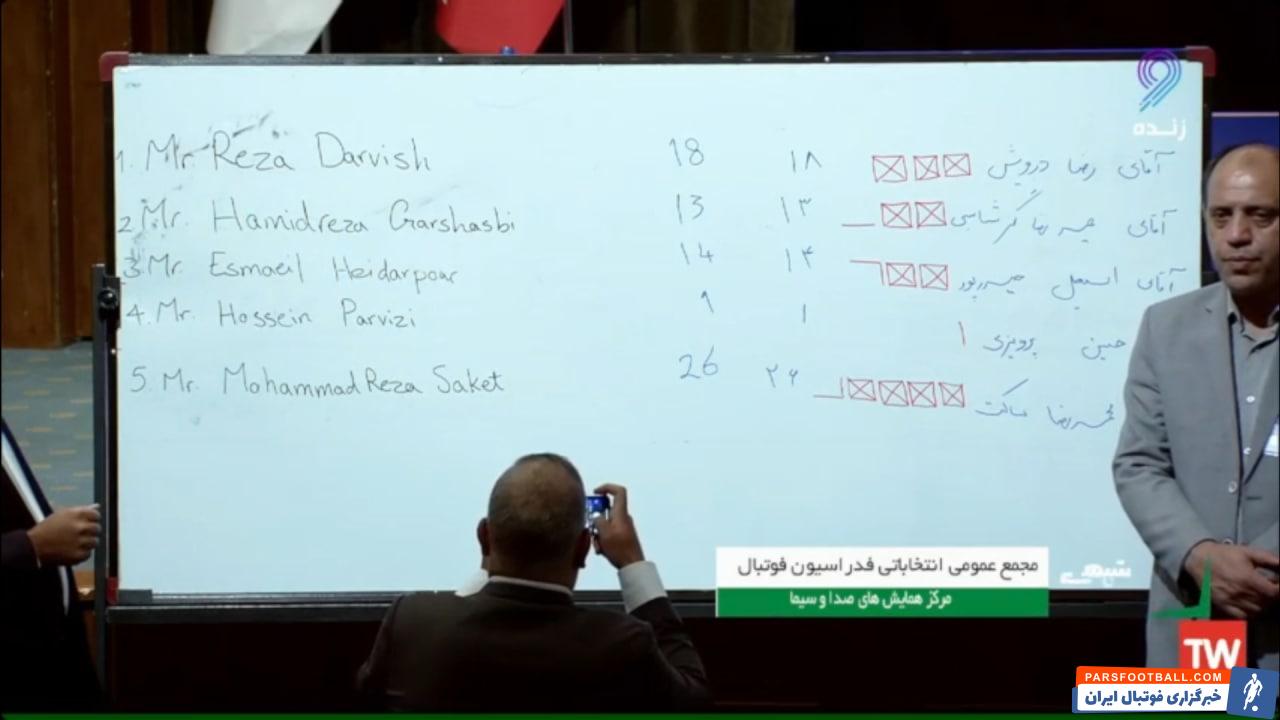 زنده
1. Mr. Reza Darvish 18 ۱۸ آقای رضا درویش
2 Mr. Hamidreza Garshasbi 13 ۱۳ آقای حمیدرضا گرشاسبی
3. Mr. Esmaeil Heidarpour 14 ۱۴ آقای اسمعیل حیدرپور
4. Mr. Hossein Parvizi 1 ۱ حسین پرویزی
5. Mr. MohammadReza Saket 26 ۲۶ محمدرضا ساکت
مجمع عمومی انتخاباتی فدراسیون فوتبال
مرکز همایش های صدا و سیما
TW
PARSFOOTBALL.COM
خبرگزاری فوتبال ایران